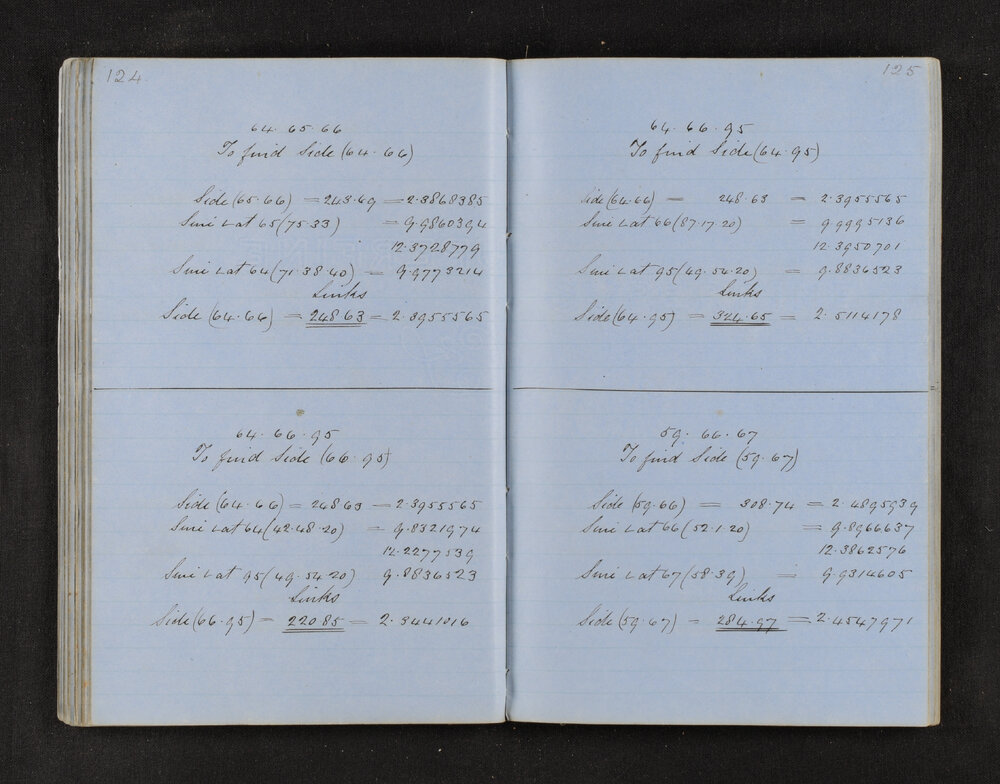 124.
64. 65. 66
To find Side (64. 66)
Side (65. 66) = 243.69 = 2.3868385
Sine ∠ at 65 (75.33) = 9.9860394
12.3728779
Sine ∠ at 64 (71.38.40) = 9.9773214
Links
Side (64. 66) = 248 63 = 2.3955565
64. 66. 95
To find Side (66. 95)
Side (64. 66) = 248 63 = 2.3955565
Sine ∠ at 64 (42.48.20) = 9.8321974
12.2277539
Sine ∠ at 95 (49.54.20) 9.8836523
Links
Side (66. 95) = 220 85 = 2.3441016
125
64. 66. 95
To find Side (64. 95)
Side (64. 66) = 248.63 = 2.3955565
Sine ∠ at 66 (87.17.20) = 9.9995136
12.3950701
Sine ∠ at 95 (49.54.20) = 9.8836523
Links
Side (64. 95) = 324.65 = 2.5114178
59. 66. 67
To find Side (59. 67)
Side (59. 66) = 308.74 = 2.4895939
Sine ∠ at 66 (52.1.20) = 9.8966637
12.3862576
Sine ∠ at 67 (58.39) = 9.9314605
Links
Side (59. 67) = 284.97 = 2.4547971